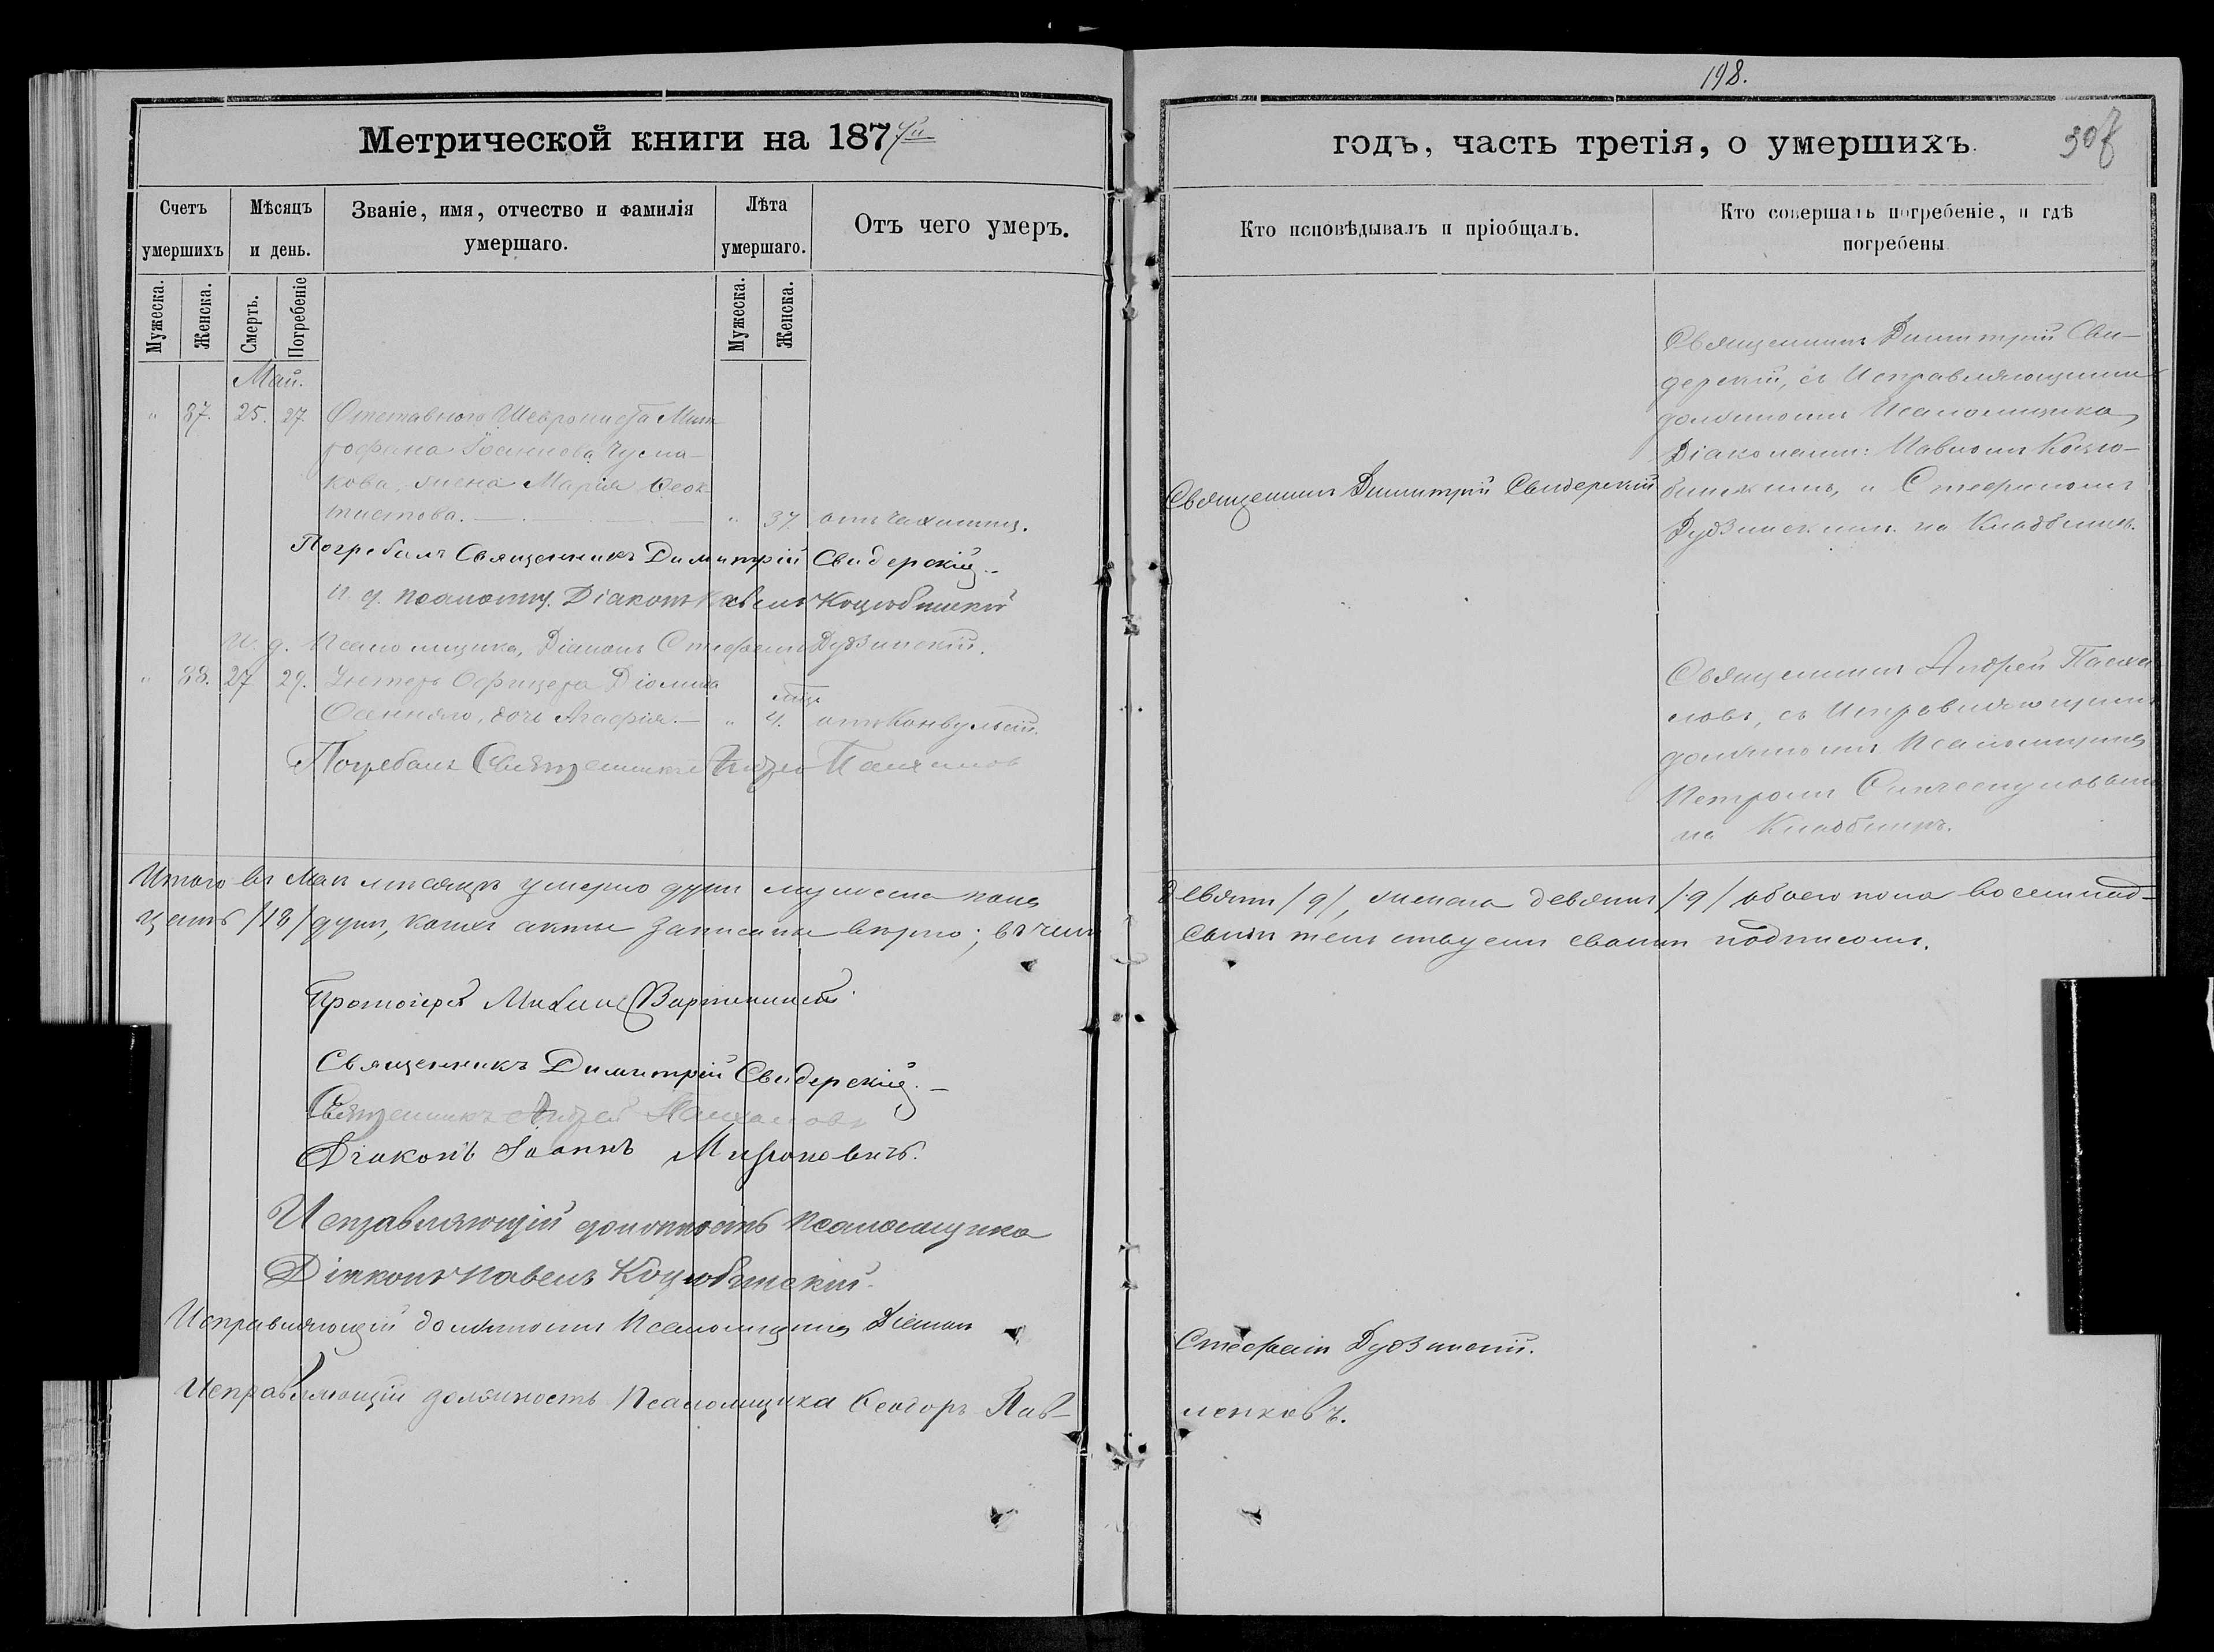 198.
Метрической книги на 187
годъ, часть третія, о умершихъ.
Счетъ умершихъ
Мѣсяцъ и день.
Званіе, имя, отчество и фамилія умершаго.
Лѣта умершаго.
Отъ чего умеръ.
Кто исповѣдывалъ и пріобщалъ.
Кто совершалъ погребеніе, и гдѣ погребены
Мужеска.
Женска.
Смерть.
Погребеніе
Мужеска.
Женска.
Май.
" 87. 25. 27. Отставного Шеврониста Мит
рофана Іоаннова Чусма-
кова, жена Марія Ѳеок-
тистова. " 37. отъ чахотки.
Священникъ Димитрій Свидерскій
Священникъ Димитрій Сви-
дерскій, съ Исправляющими
должность Псаломщика,
Діаконами: Павломъ Коцю-
бинскимъ, и Стефаномъ
Дудзинскимъ на Кладбищѣ.
Погребалъ Священникъ Димитрій Свидерскій.
И. д. псаломщ. Діаконъ Павелъ Коцюбинскій
И. д. Псаломщика, Діаконъ Стефанъ Дудзинскій.
" 88. 27 29. Унтеръ Офицера Діомида
Осенняго, дочь Агафія. " 4. мѣс. отъ Конвульсій.
Священникъ Андрей Пасха
ловъ, съ Исправляющимъ
должность Псаломщика
Петромъ
на Кладбищѣ.
Погребалъ Священникъ Андрей Пасхаловъ
Итого въ Маѣ мѣсяцѣ умерло душъ мужеска пола девять /9/, женска девять /9/ обоего пола восемнад-
цать /18/ душъ, коихъ акты записаны вѣрно; въ чемъ свидѣтельствуемъ своимъ подписомъ.
Протоіерей Михаилъ
Священникъ Димитрій Свидерскій.
Священникъ Андрей Пасхаловъ
Діаконъ Іоаннъ Мироновичъ.
Исправляющій должность Псаломщика
Діаконъ Павелъ Коцюбинскій
Исправляющій должность Псаломщика Діаконъ Стефанъ Дудзинскій.
Исправляющій должность Псаломщика Ѳеодоръ Пав-
ленковъ.